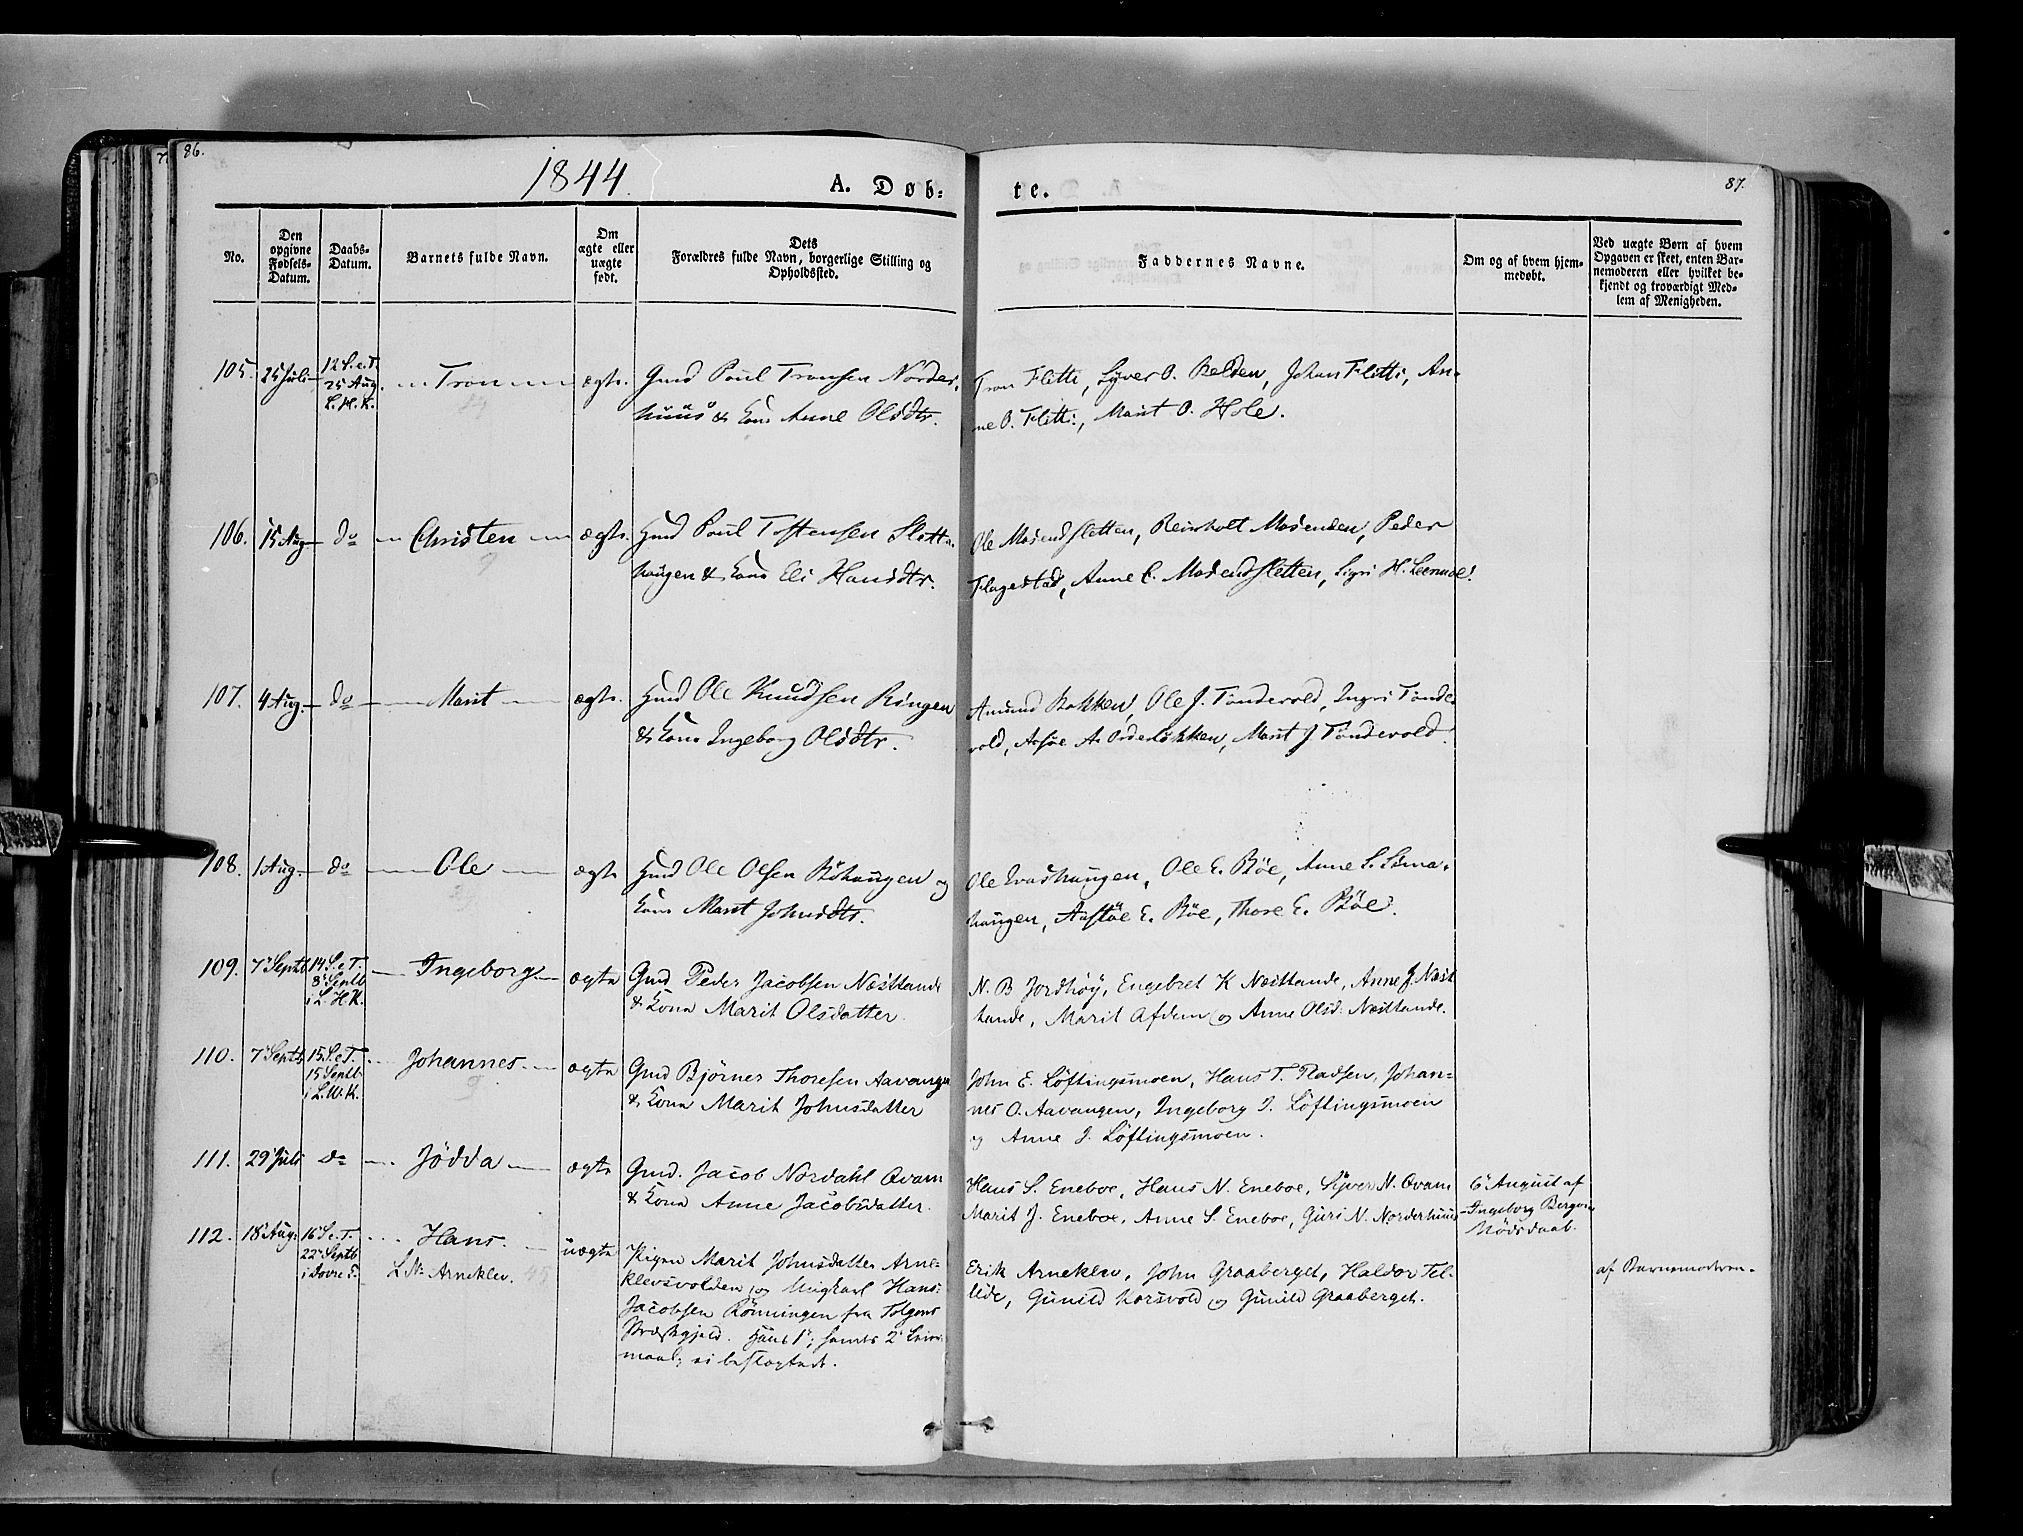 86.
1844.
A. Døb-
te.
87.
No.
Den opgivne Fødsels-Datum.
Daabs-Datum.
Barnets fulde Navn.
Om ægte eller uægte født.
Dets Forældres fulde Navn, borgerlige Stilling og Opholdssted.
Faddernes Navne.
Om og af hvem hjemmedøbt.
Ved uægte Børn af hvem Opgaven er skeet, enten Barnemoderen eller hvilket bekjendt og troværdigt Medlem af Menigheden.
105. 25 Juli 12 S.e.T. 25 Aug. L.H.K. Tron ægte. Gmd Poul Tronsen Norder-
huus & Kone Anne Olsdtr.
Tron Flitti, Syver O. Bælden, Johan Flitti, An-
ne O. Flitti, Marit O. Hole.
106. 15 Aug do Christen ægte. Hmd Poul Tostensen Slette-
haugen & Kone Eli Hansdtr.
Ole Mosendsletten, Reinholt Mosenden, Peder
Flagestad, Anne C. Mosendsletten, Sigri H.
107. 4 Aug. do Marit ægte. Hmd Ole Knudsen Ringen
& Kone Ingeborg Olsdtr.
Amund Bakken, Ole J. Tondevold, Ingri Tonde-
vold, A. Marit J Tondevold.
108. 1 Aug. do Ole ægte Hmd Ole Olsen og
Kone Marit Johnsdtr.
Ole Ole E. Bøe, Anne S.
haugen, E. Bøe, Thore E. Bøe.
109. 7 Septb 14 S.e.T. 8 Septb i L.H.K. Ingeborg ægte Gmd Peder Jacobsen Næsthande
& Kone Marit Olsdatter.
N. B Jordhøy, Engebret K Næsthande, Anne J. Næst-
hande, Marit Afdem og Anne Olsd. Næsthande.
110. 7 Septb 15 S.e.T. 15 Septb. i L.H.K. Johannes ægte Gmd Bjørner Thoresen Aavangen
& Kone Marit Johnsdatter
John E. Løftingsmoen, Hans T. Johan-
nes O. Aavangen, Ingeborg J. Løftingsmoen
og Anne J. Løftingsmoen.
111. 29 Juli do Jødda ægte Gmd. Jacob Nordahl Qvam
& Kone Anne Jacobsdatter.
Hans S. Eneboe, Hans N. Eneboe, Syver N. Qvam
Marit J. Eneboe, Anne S. Eneboe, Guri N. Norderhuus
6 August af
Ingeborg
Nødsdaab.
112. 18 Aug. 16 S.e.T. 22 Septb i Dovre K. Hans. L No Arneklev. uægte Pigen Marit Johnsdatter Arne-
klevsvolden, og Ungkarl Hans
Jacobsen Rønningen fra Tolgens
Præstegjeld. Hans 1; hendes 2 Leier-
maal; ei beslægtede.
Erik Arneklev, John Graaberget, Haldor Tel-
lide, Gunild Korsvold og Gunild Graaberget.
af Barnemoderen.